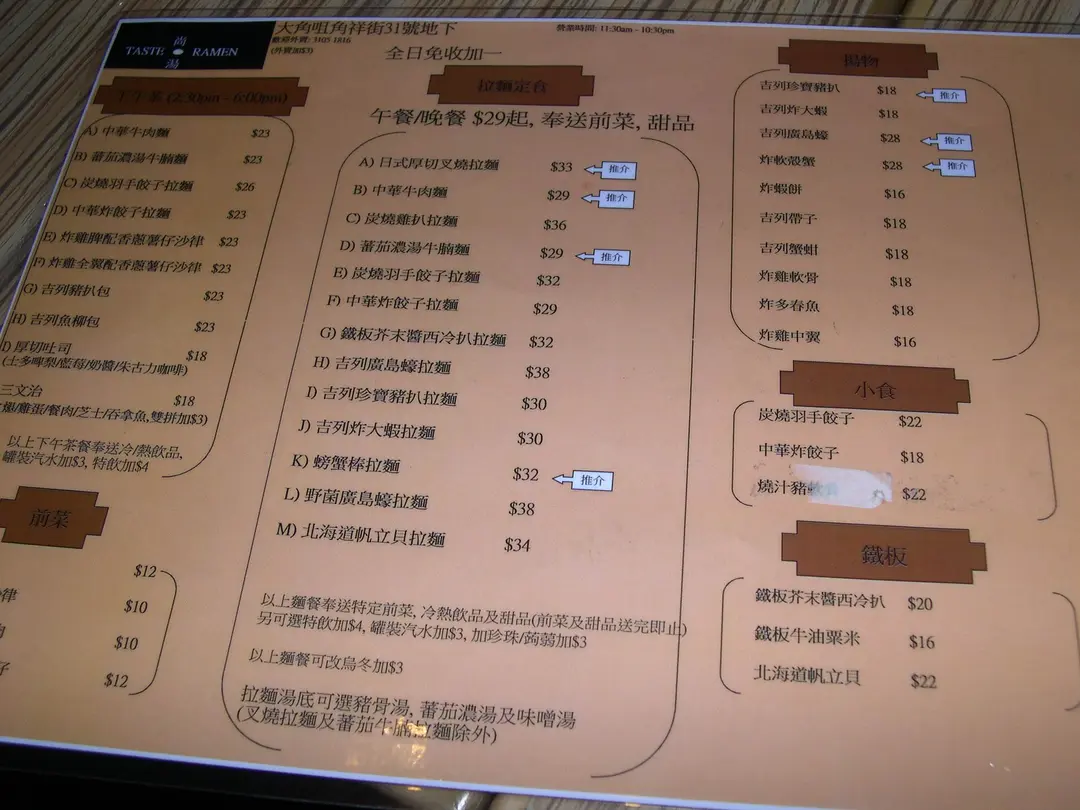 尚
TASTE ● RAMEN
湯
大角咀角祥街31號地下
歡迎外賣: 3105 1816
(外賣加$3)
全日免收加一
營業時間: 11:30am - 10:30pm
下午茶 (2:30pm - 6:00pm)
A) 中華牛肉麵 $23
B) 蕃茄濃湯牛腩麵 $23
C) 炭燒羽手餃子拉麵 $26
D) 中華炸餃子拉麵 $23
E) 炸雞脾配香蔥薯仔沙律 $23
F) 炸雞全翼配香蔥薯仔沙律 $23
G) 吉列豬扒包 $23
H) 吉列魚柳包 $23
I) 厚切吐司 $18
(士多啤梨/藍莓/奶醬/朱古力咖啡)
三文治 $18
/雞蛋/餐肉/芝士/吞拿魚,雙拼加$3)
以上下午茶餐奉送冷/熱飲品,
罐裝汽水加$3, 特飲加$4
前菜
$12
律 $10
$10
$12
拉麵定食
午餐/晚餐 $29起, 奉送前菜, 甜品
A) 日式厚切叉燒拉麵 $33 推介
B) 中華牛肉麵 $29 推介
C) 炭燒雞扒拉麵 $36
D) 蕃茄濃湯牛腩麵 $29 推介
E) 炭燒羽手餃子拉麵 $32
F) 中華炸餃子拉麵 $29
G) 鐵板芥末醬西冷扒拉麵 $32
H) 吉列廣島蠔拉麵 $38
I) 吉列珍寶豬扒拉麵 $30
J) 吉列炸大蝦拉麵 $30
K) 螃蟹棒拉麵 $32 推介
L) 野菌廣島蠔拉麵 $38
M) 北海道帆立貝拉麵 $34
以上麵餐奉送特定前菜, 冷熱飲品及甜品(前菜及甜品送完即止)
另可選特飲加$4, 罐裝汽水加$3, 加珍珠/蒟蒻加$3
以上麵餐可改烏冬加$3
拉麵湯底可選豬骨湯, 蕃茄濃湯及味噌湯
(叉燒拉麵及蕃茄牛腩拉麵除外)
揚物
吉列珍寶豬扒 $18 推介
吉列炸大蝦 $18
吉列廣島蠔 $28 推介
炸軟殼蟹 $28 推介
炸蝦餅 $16
吉列帶子 $18
吉列蟹蚶 $18
炸雞軟骨 $18
炸多春魚 $18
炸雞中翼 $16
小食
炭燒羽手餃子 $22
中華炸餃子 $18
燒汁豬軟骨 $22
鐵板
鐵板芥末醬西冷扒 $20
鐵板牛油粟米 $16
北海道帆立貝 $22